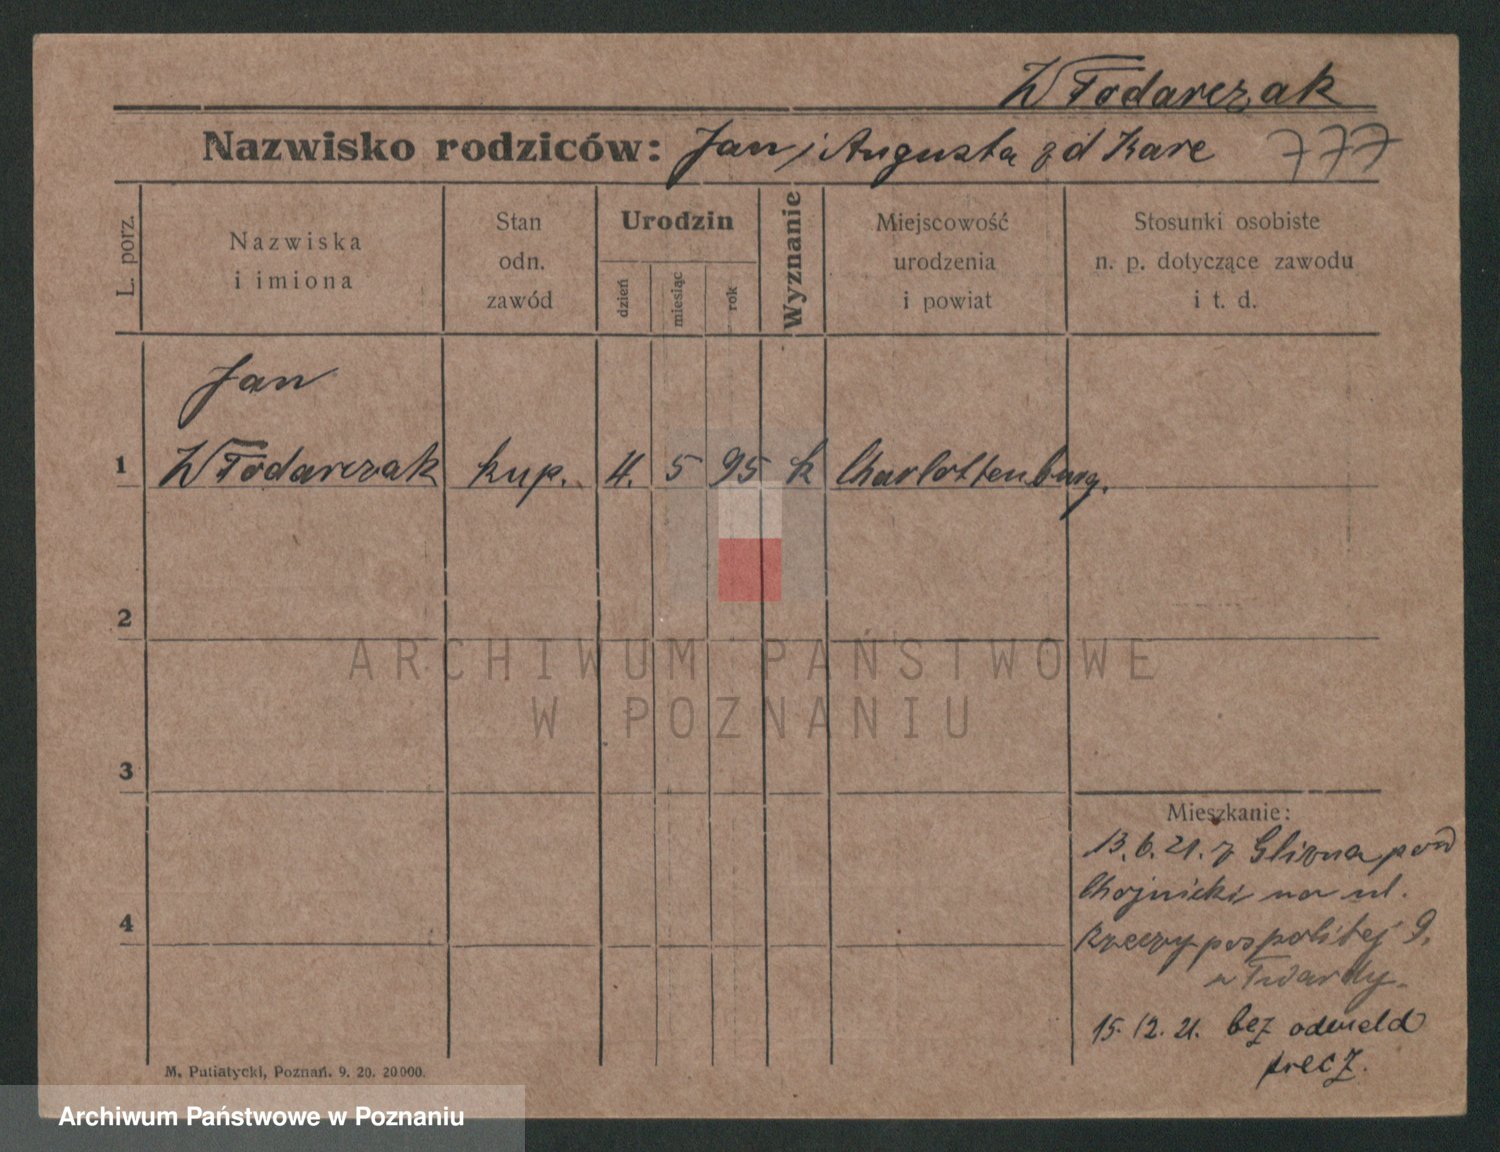 Włodarczak
Nazwisko rodziców: Jan i Augusta z d Kare 777
L. porz.
Nazwiska
i imiona
Stan
odn.
zawód
Urodzin
dzień
miesiąc
rok
Wyznanie
Miejscowość
urodzenia
i powiat
Stosunki osobiste
n. p. dotyczące zawodu
i t. d.
Jan
1 Włodarczak kup. 4. 5 95 k Charlottenburg.
2
ARCHIWUM PAŃSTWOWE
W POZNANIU
3
Mieszkanie:
13.6.21. z pow
Chojnicki na ul.
4
Rzeczypospolitej 9.
u Twardy.
15.12.21. bez odmeld
precz.
M. Putiatycki, Poznań. 9. 20. 20000.
Archiwum Państwowe w Poznaniu